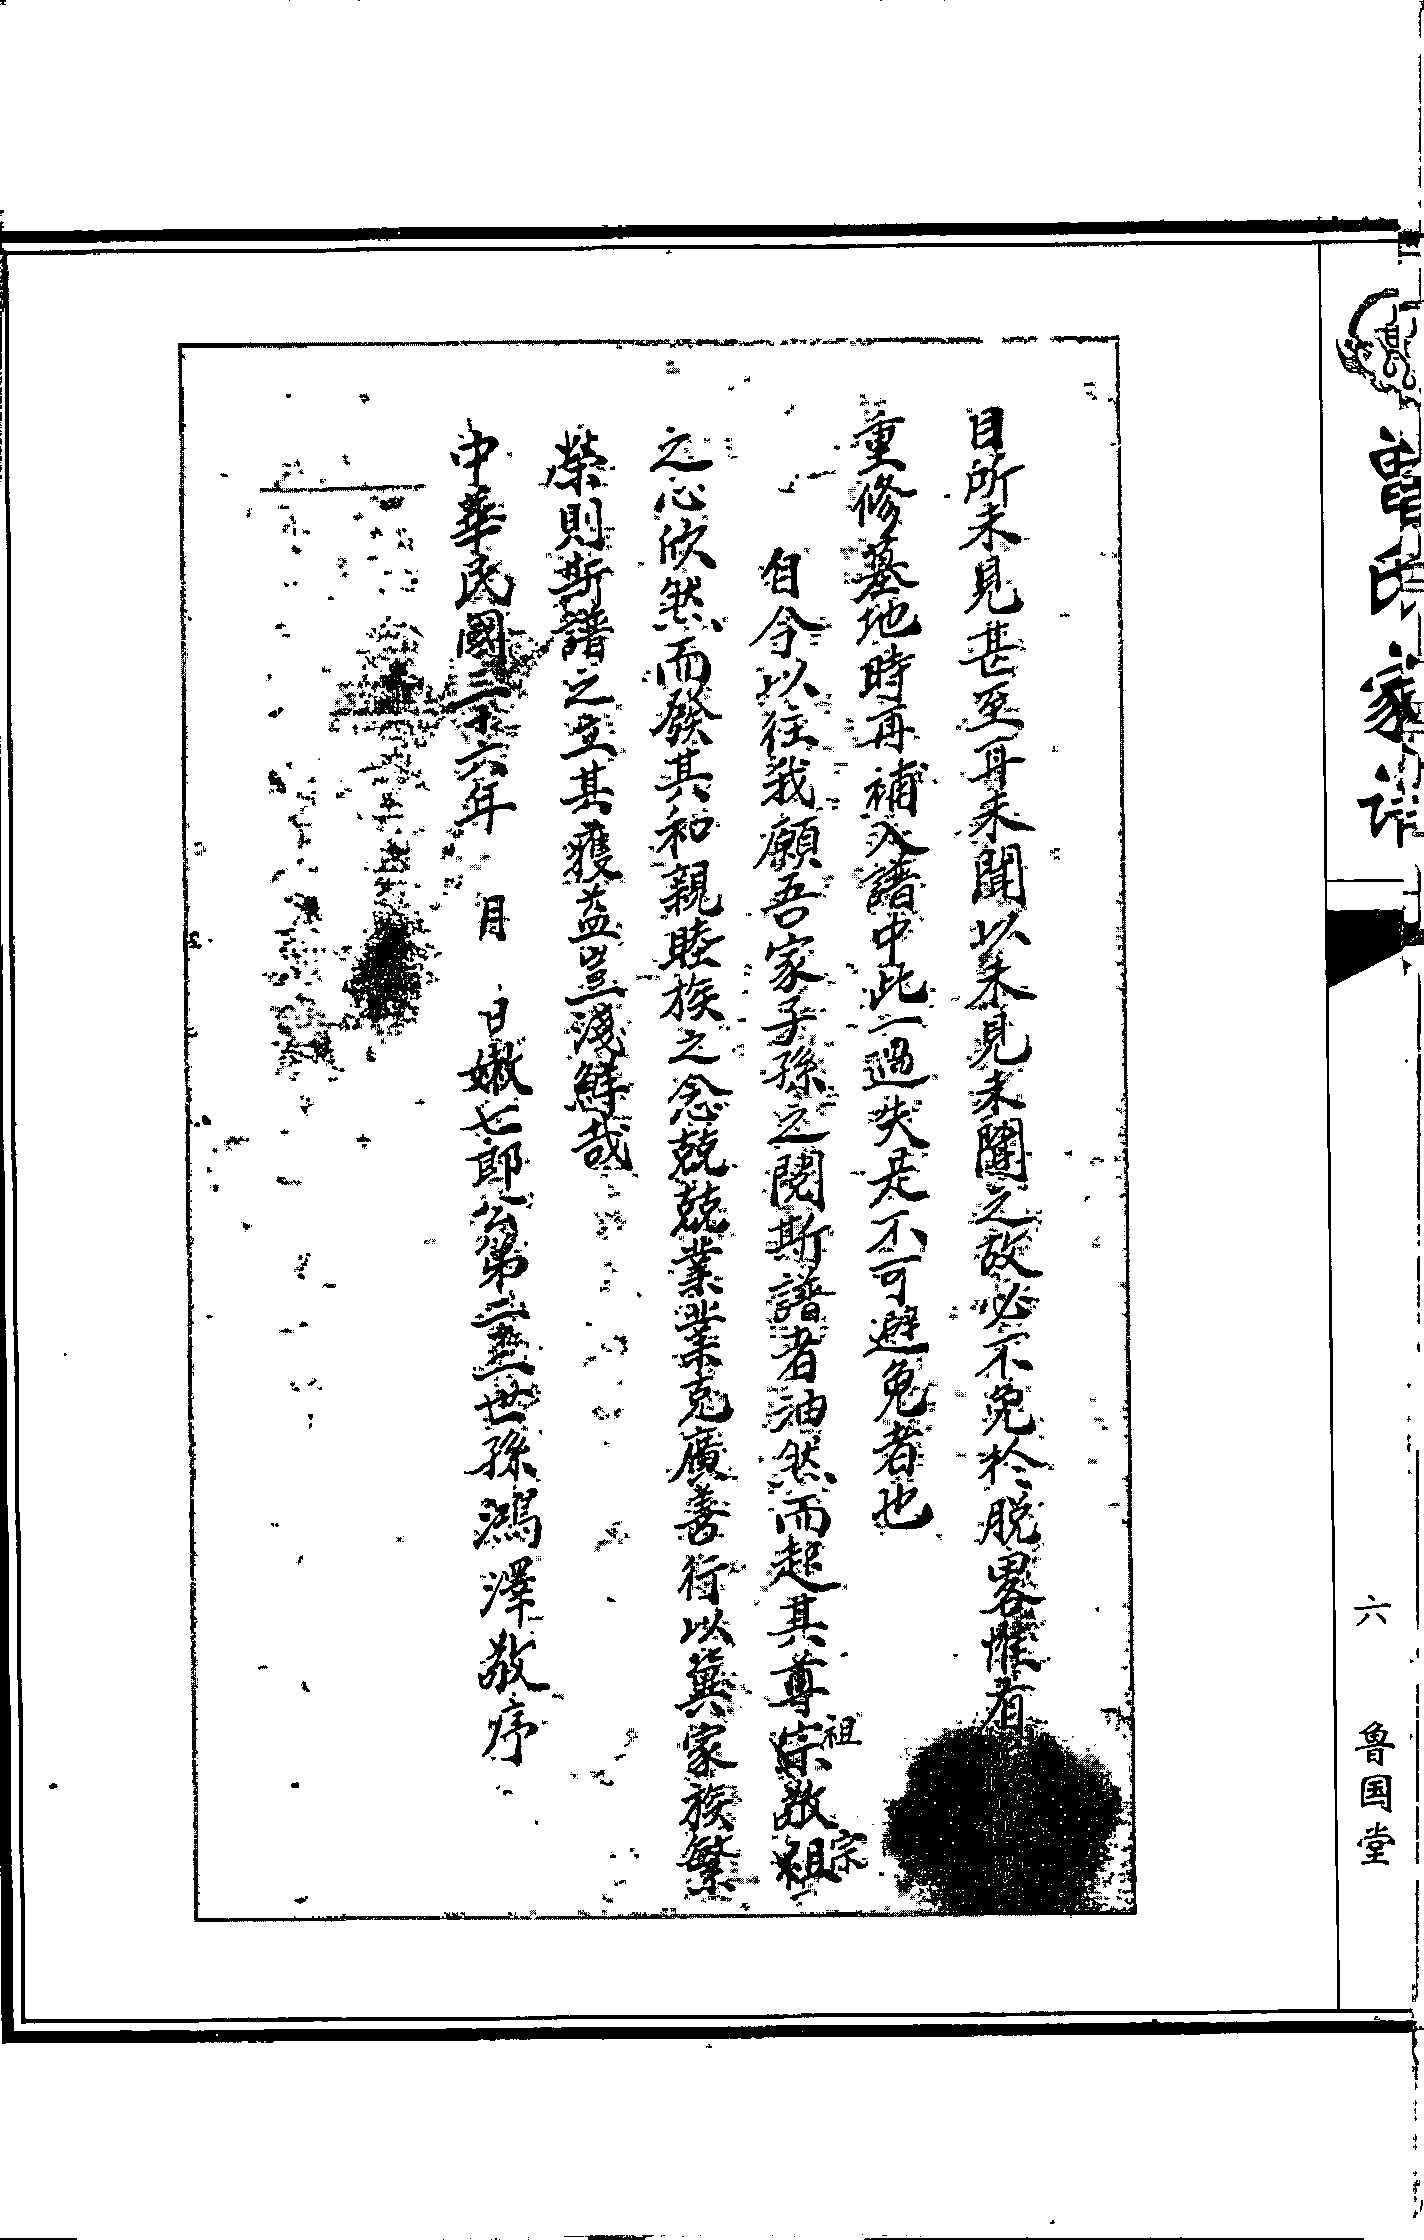 曾氏家谱
六
鲁国堂
目所未見甚至耳未聞以未見未聞之故必不免於脱畧惟有
重修墓地時再補入譜中此一過失是不可避免者也
自今以往我願吾家子孫之閱斯譜者油然而起其尊祖敬宗
之心欣然而發其和親睦族之念兢兢業業克廣善行以冀家族繁
榮則斯譜之立其獲益豈淺鮮哉
中華民國三十六年 月 日嫩七郎公第二十三世孫鴻澤敬序